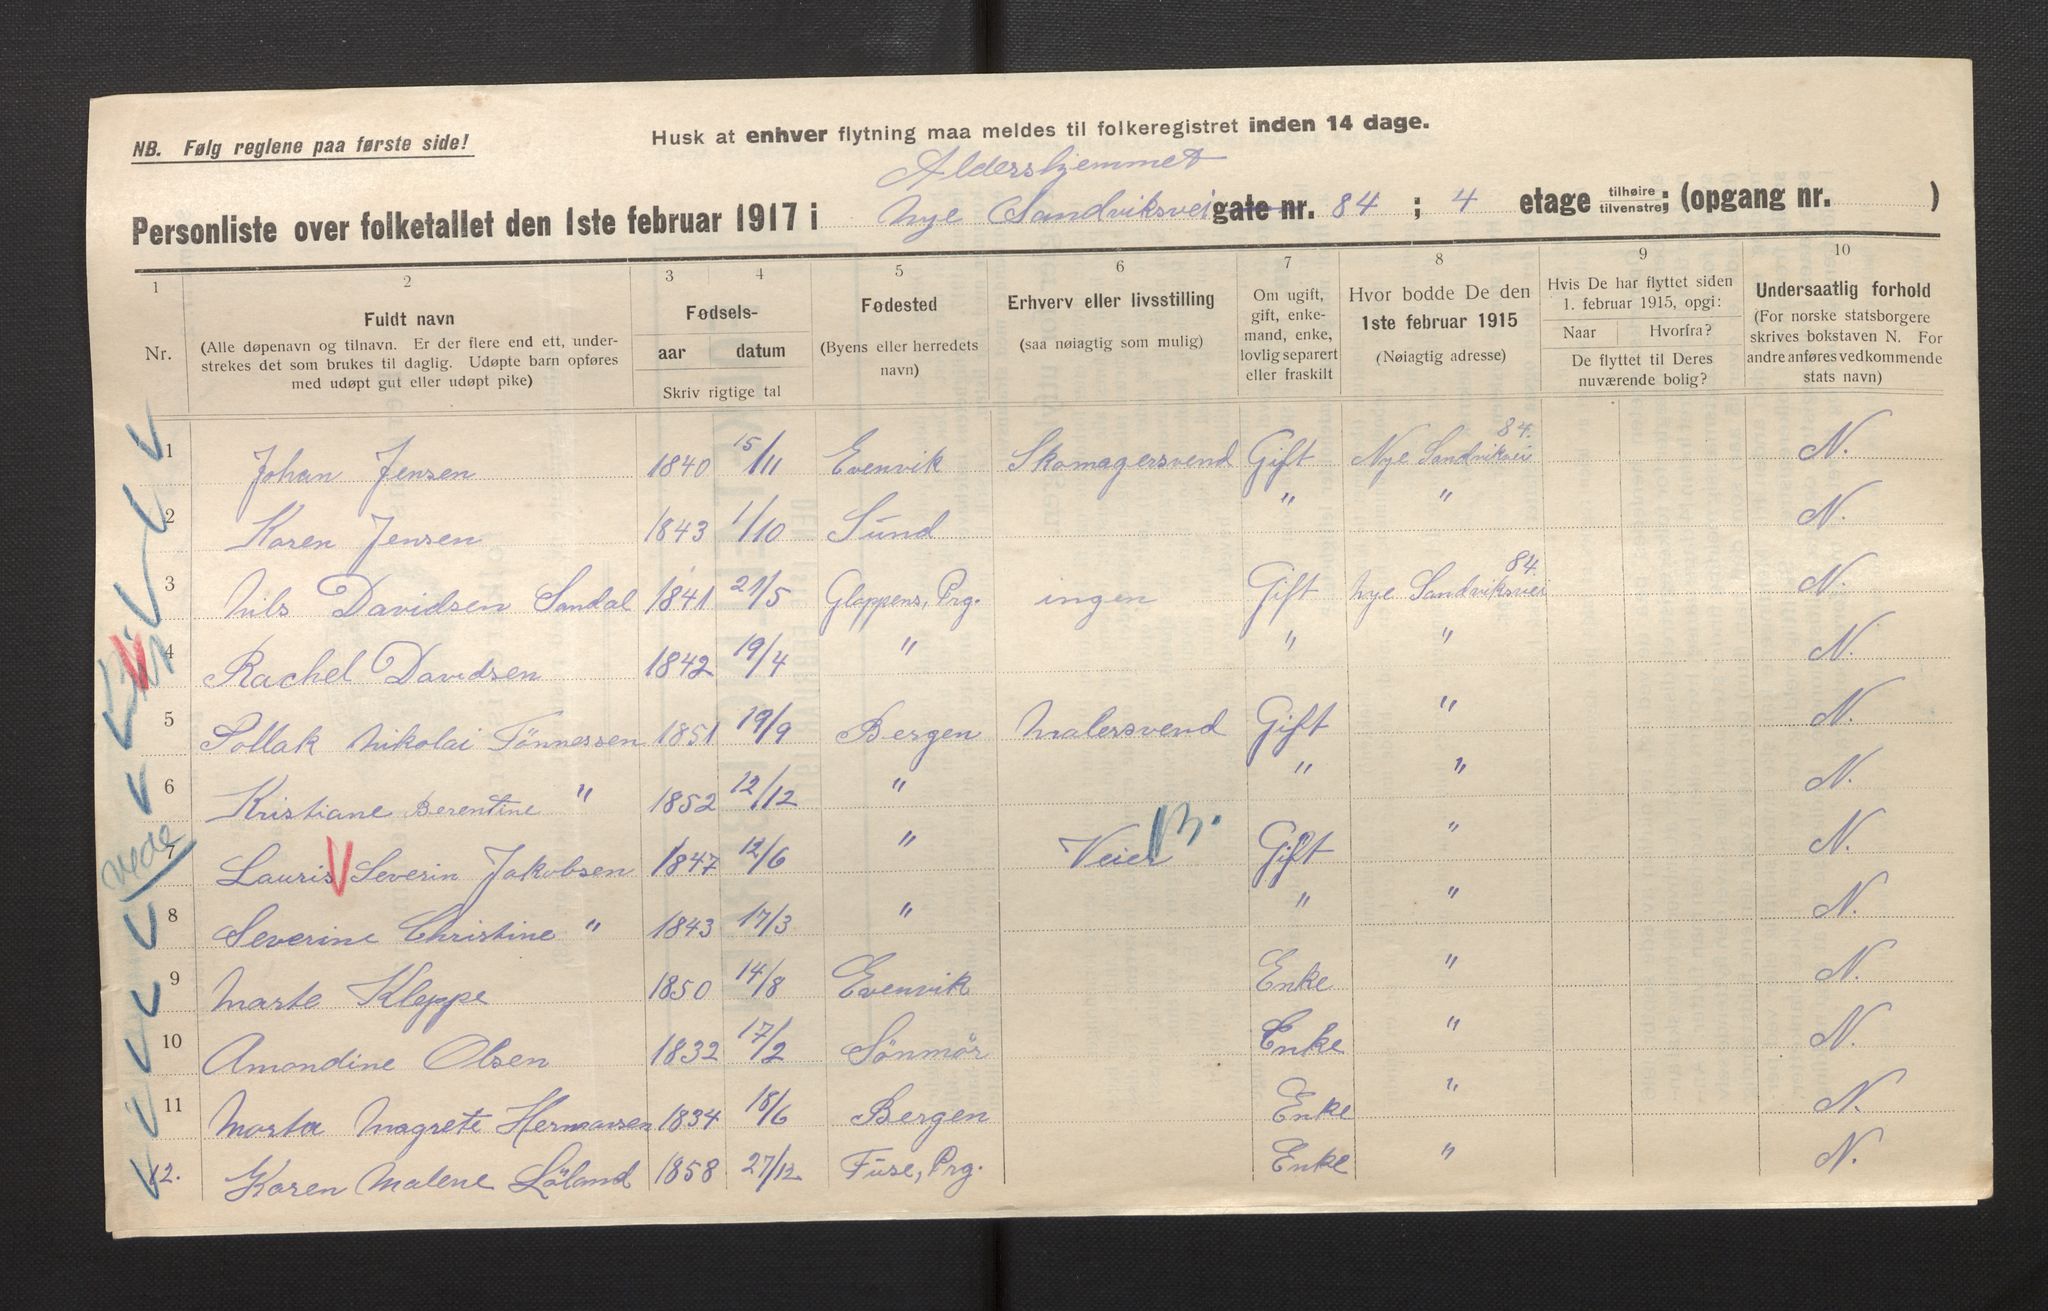 NB. Følg reglene paa første side!
Husk at enhver flytning maa meldes til folkeregistret inden 14 dage.
Aldershjemmet
Personliste over folketallet den 1ste februar 1917 i Nye Sandviksvei gate nr. 84 ; 4 etage tilhøire tilvenstre; (opgang nr. )
1 2 3 4 5 6 7 8 9 10
Nr.
Fuldt navn
(Alle døpenavn og tilnavn. Er der flere end ett, under-
strekes det som brukes til daglig. Udøpte barn opføres
med udøpt gut eller udøpt pike)
Fødsels-
aar datum
Skriv rigtige tal
Fødested
(Byens eller herredets
navn)
Erhverv eller livsstilling
(saa nøiagtig som mulig)
Om ugift,
gift, enke-
mand, enke,
lovlig separert
eller fraskilt
Hvor bodde De den
1ste februar 1915
(Nøiagtig adresse)
Hvis De har flyttet siden
1. februar 1915, opgi:
Naar Hvorfra?
De flyttet til Deres
nuværende bolig?
Undersaatlig forhold
(For norske statsborgere
skrives bokstaven N. For
andre anføres vedkommende
stats navn)
1 Johan Jensen 1840 15/11 Evenvik Skomagersvend Gift Nye Sandviksvei 84. N.
2 Karen Jensen 1843 1/10 Sund " " N.
3 Nils Davidsen Sandal 1841 21/5 Gloppens, Prg. ingen Gift Nye Sandviksvei 84. N.
4 Rachel Davidsen 1842 19/4 " " " N.
5 Pollak Nikolai Tönnessen 1851 19/9 Bergen Malersvend Gift " N.
6 Kristiane Berentine " 1852 12/12 " " " N.
7 Lauris Severin Jakobsen 1847 12/6 " Veier B. Gift " N.
8 Severine Christine " 1843 17/3 " " " N.
9 Marte Kleppe 1850 14/8 Evenvik Enke " N.
10 Amandine Olsen 1832 17/2 Sönmör Enke " N.
11 Marta Magrete Hermansen 1834 18/6 Bergen Enke " N.
12. Karen Malene Löland 1858 27/12 Fuse, Prg. Enke " N.